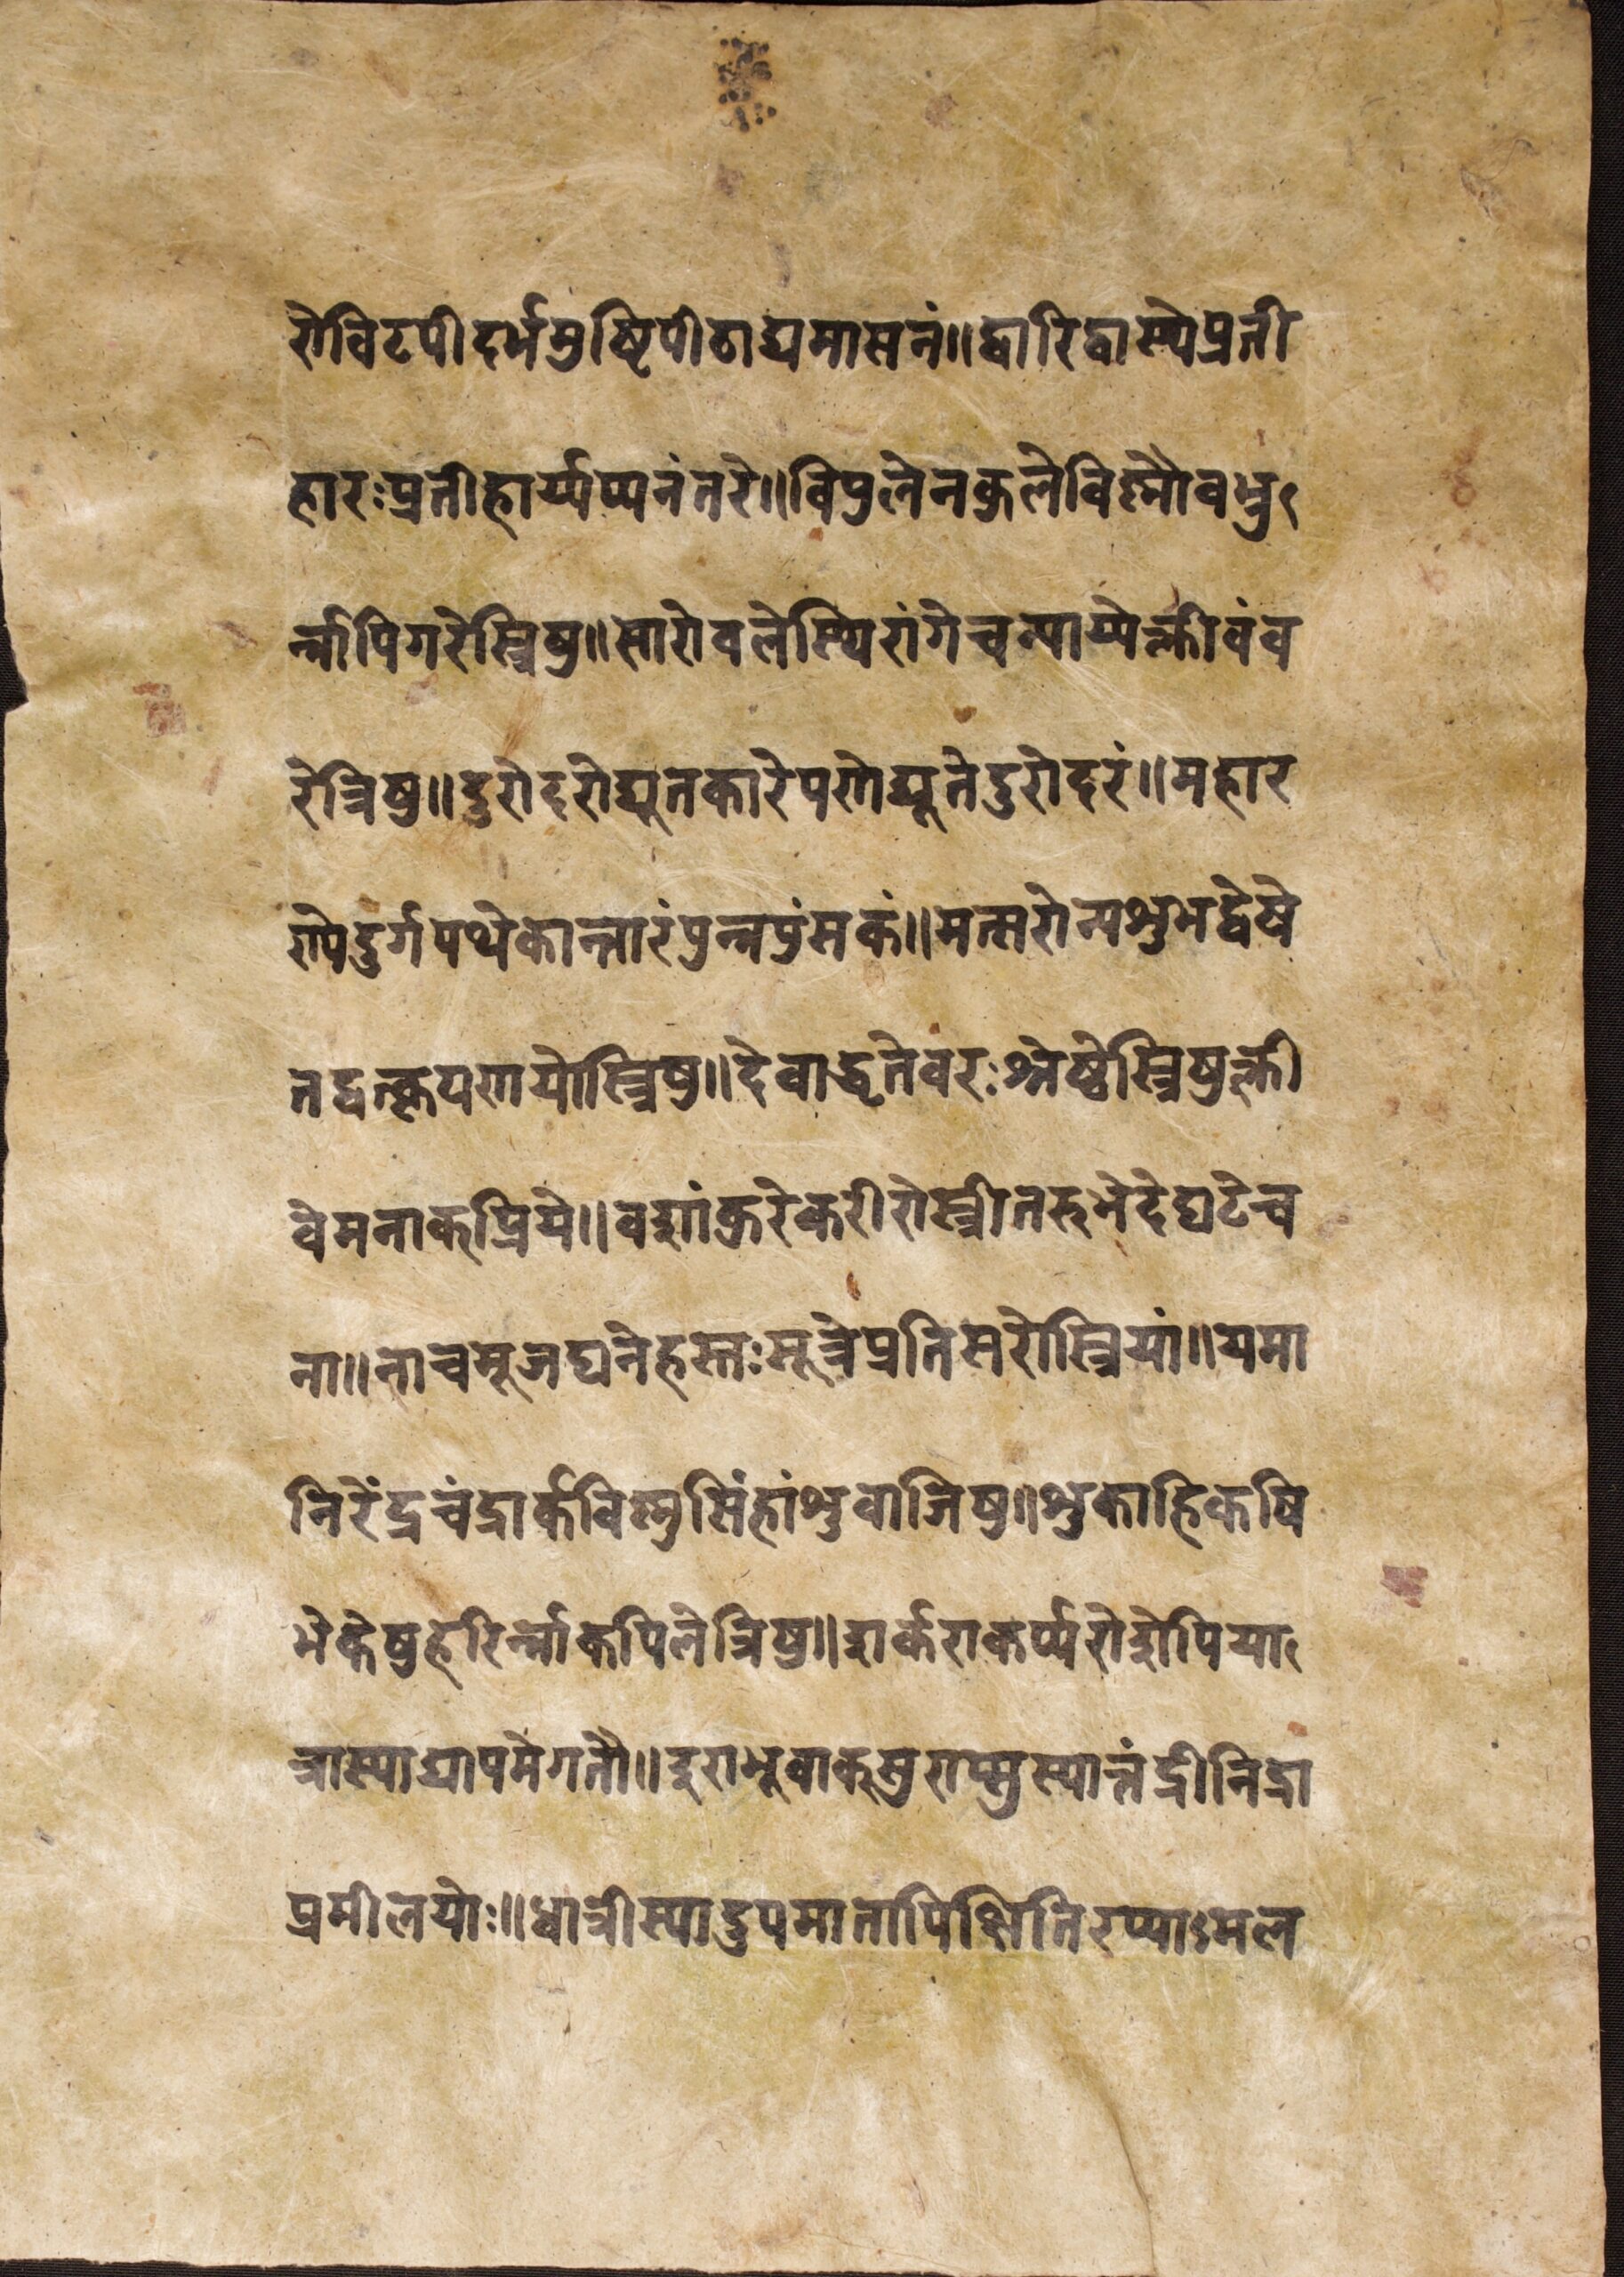 रोविटपीदर्भमुष्टिपीठाद्यमासनं॥द्वारिद्वास्थेप्रती
हारःप्रतीहार्य्यप्यनंतरे॥विपुलेनकुलेविष्णौवभ्रु
र्न्नापिगरेस्त्रिषु॥सारोवलेस्थिरांगेचन्याय्येक्लीवंव
रेत्रिषु॥दुरोदरोद्यूतकारेपणेद्यूतेदुरोदरं॥महार
ण्येदुर्गपथेकान्तारंपुन्नपुंसकं॥मत्सरोन्यशुभद्वेषे
तद्वत्कृपणयोस्त्रिषु॥देवाद्वृतेवरःश्रेष्ठेस्त्रिषुक्ली
वेमनाक्प्रिये॥वशांकुरेकरीरोस्त्रीतरुभेदेघटेच
ना॥नाचमूजघनेहस्तःसूत्रेप्रतिसरोस्त्रियां॥यमा
निरेंद्रचंद्रार्कविष्णुसिंहांशुवाजिषु॥शुकाहिकपि
भेकेषुहरिर्न्नाकपिलेत्रिषु॥शर्कराकर्प्परोशेपिया
त्रास्याद्यापमेगतौ॥इराभूवाक्सुराप्सुस्यात्तंद्रीनिद्रा
प्रमीलयोः॥धात्रीस्यादुपमातापिक्षितिरप्याऽमल